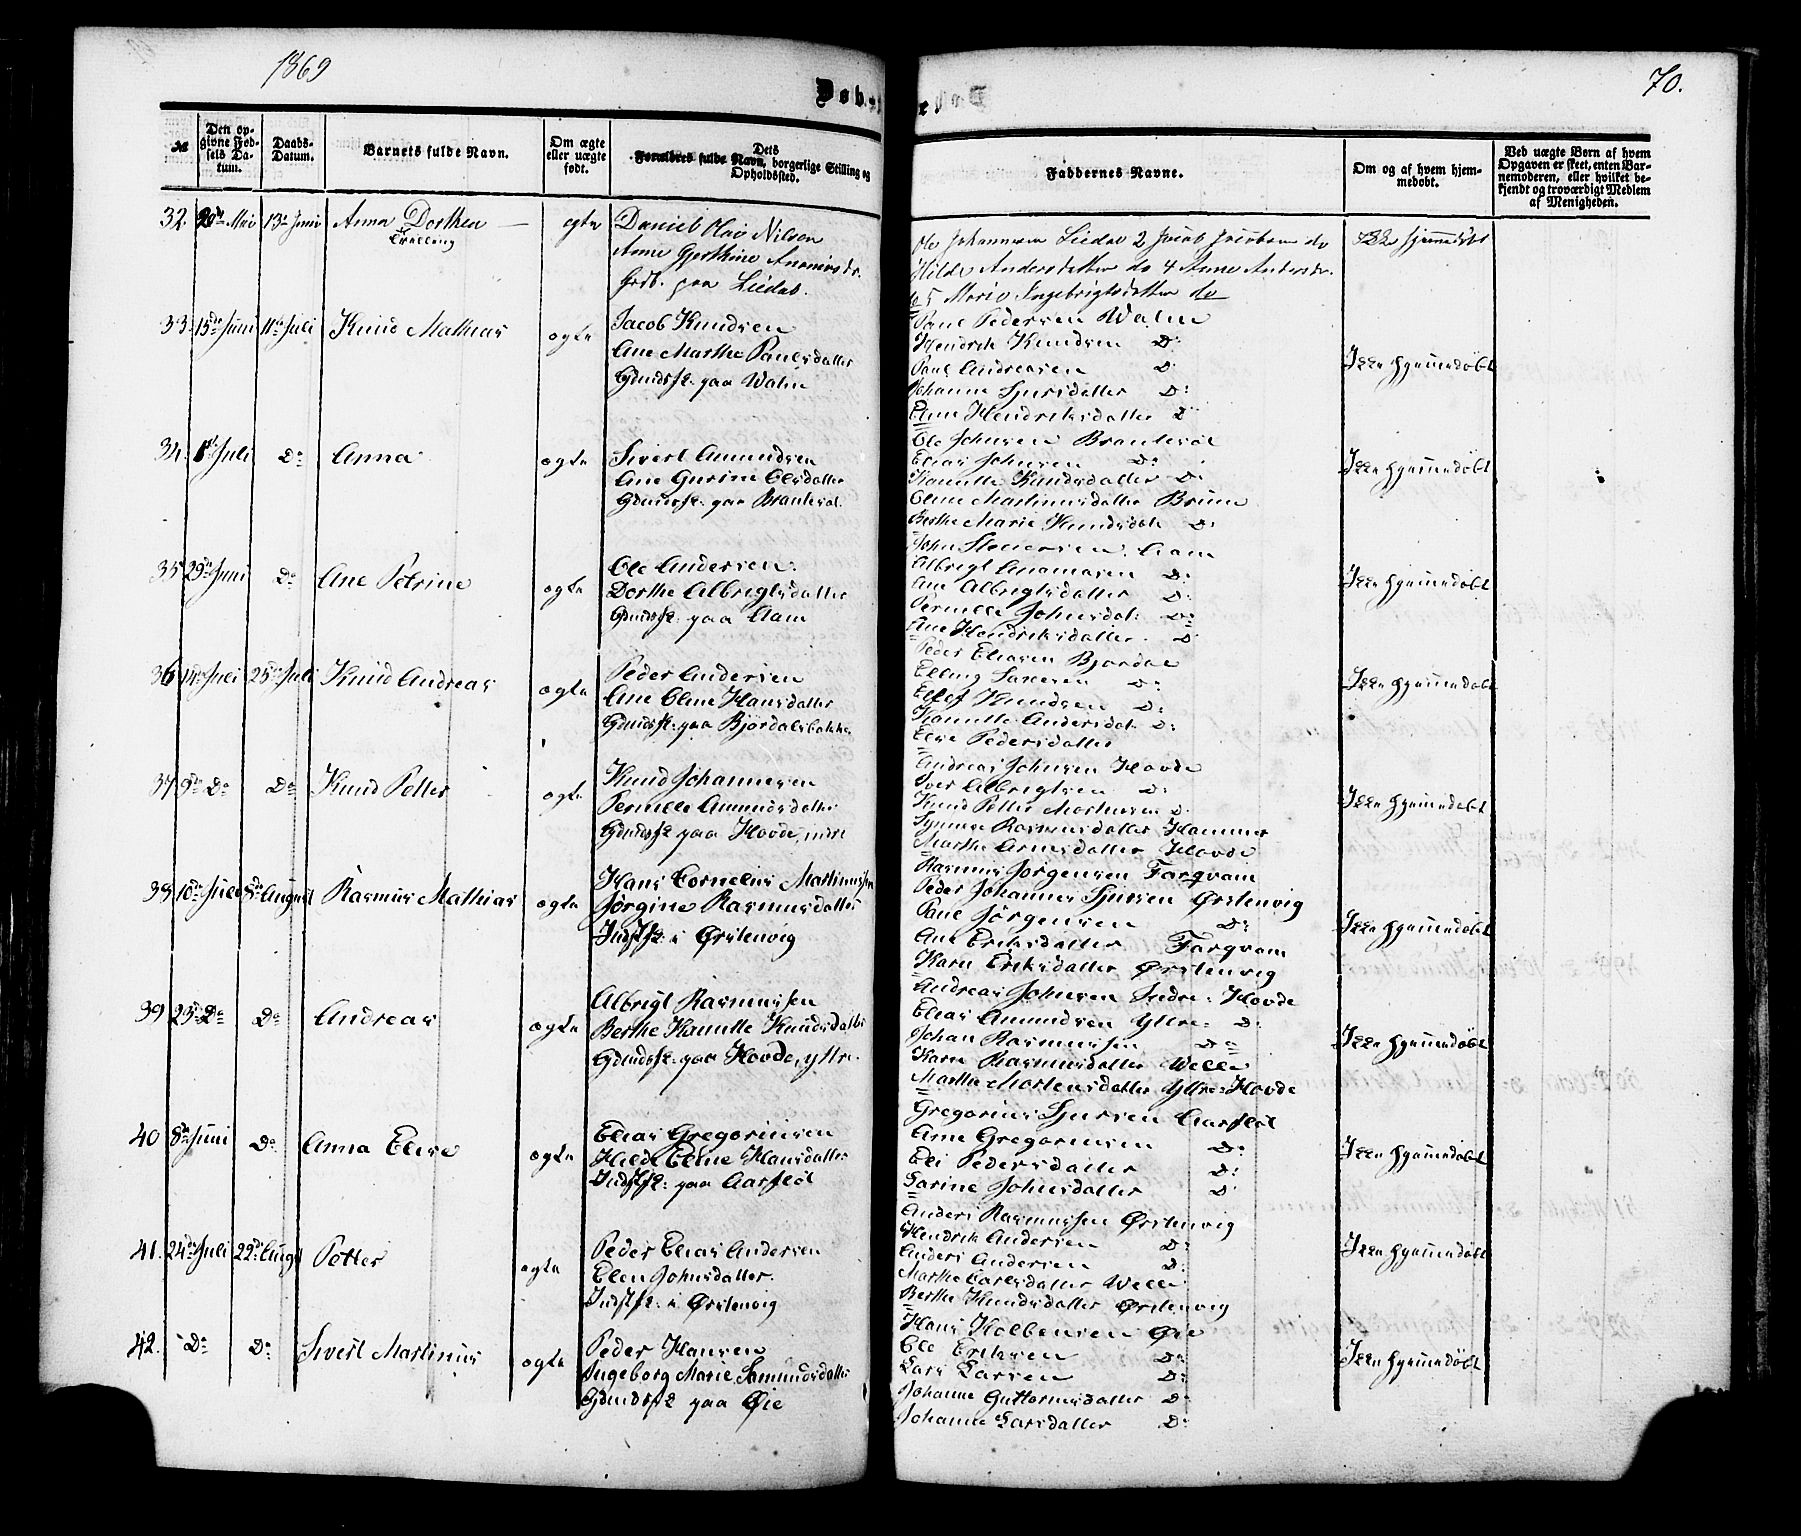 1869
70.
Døbte
№
Den opgivne Fødsels Datum.
Daabs-Datum.
Barnets fulde Navn.
Om ægte eller uægte født.
Dets Forældres fulde Navn, borgerlige Stilling og Opholdssted.
Faddernes Navne.
Om og af hvem hjemmedøbt.
Ved uægte Børn af hvem Opgaven er skeet, enten Barnemoderen, eller hvilket bekjendt og troværdigt Medlem af Menigheden.
32. Mai 13de Juni Anna Dorthea ægte
Daniel Olai Nilsen
Anne Gjertine
paa Liedal.
Ole Johannesen Liedal 2 Jacob Jacobsen do
Hilde Andersdatter do 4 Anne Andersdr.
do 5 Marie Ingebrigtsdatter do
Ikke hjemmedøbt
33. 15de Juni 11te Juli Knud Mathias ægte
Jacob Knudsen
Ane Marthe Paulsdatter
Gdmdsf: paa Valin
Paul Pedersen Walin
Hendrik Knudsen D:
Paul Andreasen D:
Johanne Sjursdatter D:
Eline Hendriksdatter D:
Ikke hjemmedøbt
34. 1st Juli Do Anna ægte
Sivert Amundsen
Ane Gurine Olsdatter
Gdmdsf: paa Brautesæt
Ole Johnsen Brautesæt
Elias Johnsen D:
Hanntte Knudsdatter D:
Oline Martinusdatter Bruun
Berthe Marie Knudsdatr D:
Ikke hjemmedøbt
35 29de Juni Do Ane Petrine ægte
Ole Andersen
Dorthe Albrigtsdatter
Gdmdsf: paa Aam
John Steffensen Aam
Albrigt Anamasen D:
Ane Albrigtsdatter D:
Pernille Johnsdatr D:
Ane Hendriksdatter D:
Ikke hjemmedøbt
36 14de Juli 25de Juli Knud Andreas ægte
Peder Andersen
Ane Oline Hansdatter
Gdmdsf: paa Bjørdalsbakke
Peder Eliasen Bjørdal
Elling Larsen D:
Ellef Knudsen D:
Hanntte Andersdatr D:
Else Pedersdatter
Ikke hjemmedøbt
37 9de Do Do Knud Petter ægte
Knud Johannesen
Pernille Amundsdatter
Gdmdsf: paa Hovde, indre
Andreas Johnsen Hovde
Iver Albrigtsen D:
Knud Petter Mortensen D:
Synneve Rasmusdatter Hammer
Marthe Arnesdatter Hovde
Ikke hjemmedøbt
38 10de Juli 8de August Rasmus Mathias ægte
Hans Cornelius Martinussen
Jørgine Rasmusdatter
Indstf: i Ørstenvig
Rasmus Jørgensen Farqvam
Peder Johannes Sjursen Ørstenvig
Paul Jørgensen D:
Ane Eriksdatter Farqvam
Karn Eriksdatter Ørstenvig
Ikke hjemmedøbt
39 25de Do Do Andreas ægte
Albrigt Rasmussen
Berthe Hanntte Knudsdatter
Gdmdsf: paa Hovde, yttre.
Andreas Johnsen Indre-Hovde
Elias Amundsen Yttre- D:
Johan Rasmussen D:
Karn Rasmusdatter Welle
Marthe Mortensdatter Yttre-Hovde
Ikke hjemmedøbt
40 8de Juni Do Anna Elise ægte
Elias Gregoriusen
Hilde Eline Hansdatter
Indstf: paa Aarsæt
Gregorius Sjursen Aarsæt
Arne Gregoriusen D:
Eli Pedersdatter D:
Sarine Johnsdatter D:
Ikke hjemmedøbt
41. 24de Juli 22de Augst Petter ægte
Peder Elias Andersen
Elen Johnsdatter.
Indstf: i Ørstenvig
Anders Rasmussen Ørstenvig
Hendrik Andersen D:
Anders Andersen D:
Marthe Carlsdatter Welle
Berthe Knudsdatter Ørstenvig
Ikke hjemmedøbt
42. Do Do Sivert Martinus ægte
Peder Hansen
Ingeborg Marie Samundsdatter
Gdmdsf: paa Øie
Hans Kolbensen Øie
Ole Eriksen D:
Lars Larsen D:
Johanne Guttormsdatter D:
Johanne Larsdatter D:
Ikke hjemmedøbt